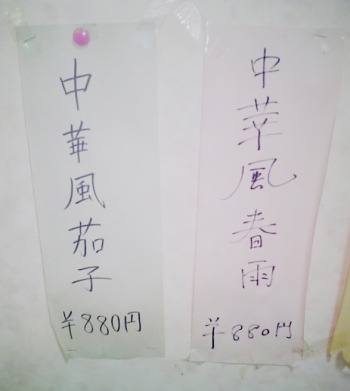 中華風茄子
¥880円
中華風春雨
¥880円